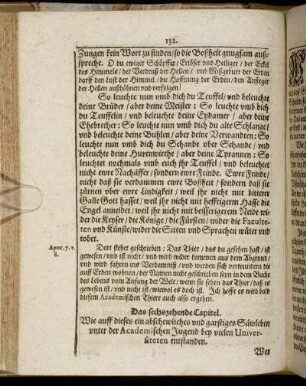 132.
Zungen kein Wort zu finden/ so die Boßheit gnugsam auß-
sprecht. O du ewiger Schöpffer/ Erlöser und Heiliger/ der
des Himmels/ der Verdruß der Hellen/ und Mißgeburt der Erden
darff den lust der Himmel/ die Hoffnung der Erden/ den Ansieger
der Hellen anhöhnen und verspeigen/
So leuchte nun vmb dich du Teuffel/ und beleuchte
deine Brüder/ aber deine Meister: So leuchte vmb dich
du Teuffelin/ und beleuchte deine Eydamer/ aber deine
Ehebrecher: So leuchte nun vmb dich du alte Schlange/
vnd beleuchte deine Buhlen/ aber deine Verwandten: So
leuchte nun vmb dich du Schande vber Schande/ und
beleuchte deine Hurenwirthe/ aber deine Tyrannen: So
leuchtet nochmals vmb euch ihr Teuffel/ und beleuchtet
nicht ewre Nachäffer/ sondern ewre Feinde. Ewre Feinde/
nicht daß sie verdammen ewre Boßheit/ sondern daß sie
eyfern vber ewre Uindigkeit/ weil ihr nicht mit bitterer
Galle Gott hasset/ weil ihr nicht mit hefftigerm Hasse die
Engel anneidet/ weil ihr nicht mit
der die Keyser/ die Könige/ die Fürsten/ vnder die Faculte-
ten vnd Künste/ wider die Sitten und Sprachen wütet vnd
tobet.
Dort stehet geschrieben: Das Thier/ das du gesehen hast/ ist
gewesen/ und ist nicht/ und wird wider kommen aus dem Abgrund/
und wird fahren ins Verdamniß/ und werden sich verwundern die
auff Erden wohnen/ der Namen nicht geschrieben stehn in dem Buch
des Lebens vom Anfang der Welt/ wenn sie sehen das Thier/ daß es
gewesen ist/ und nicht ist/ wiewol es doch ist. Ich hoffe es werd bald
diesem Academischen Thiere auch also ergehen.
Das sechszehende Capitel.
Wie auff dieses ein abschewliches und garstiges Säuleben
vnter der Academischen Jugend bey vielen Univer-
siteten entstanden.
Wer